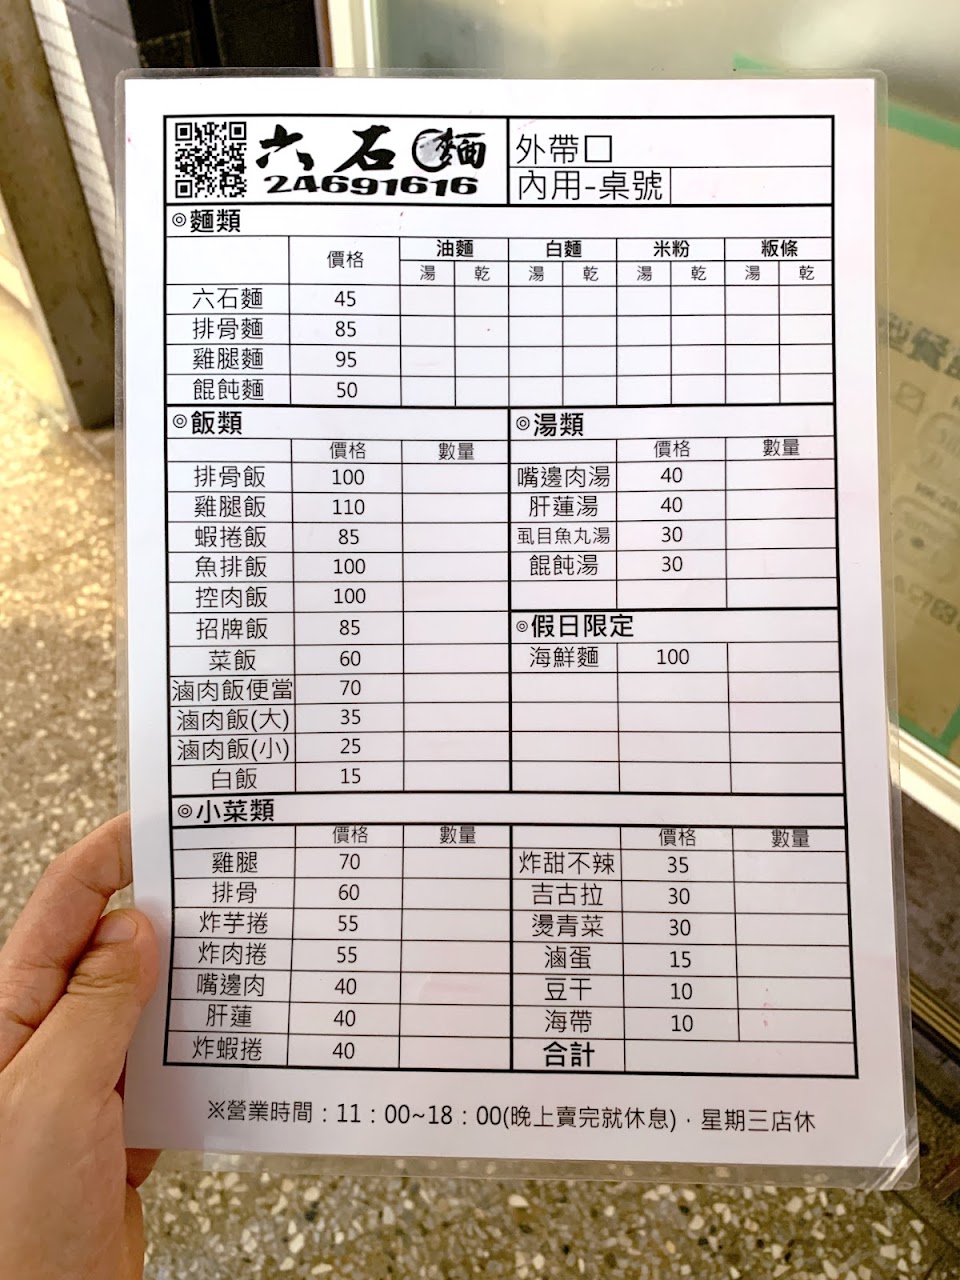 六石麵
24691616
外帶□
內用-桌號
◎麵類
價格 油麵 白麵 米粉 粄條
湯 乾 湯 乾 湯 乾 湯 乾
六石麵 45
排骨麵 85
雞腿麵 95
餛飩麵 50
◎飯類
價格 數量
排骨飯 100
雞腿飯 110
蝦捲飯 85
魚排飯 100
控肉飯 100
招牌飯 85
菜飯 60
滷肉飯便當 70
滷肉飯(大) 35
滷肉飯(小) 25
白飯 15
◎湯類
價格 數量
嘴邊肉湯 40
肝蓮湯 40
虱目魚丸湯 30
餛飩湯 30
◎假日限定
海鮮麵 100
◎小菜類
價格 數量
雞腿 70
排骨 60
炸芋捲 55
炸肉捲 55
嘴邊肉 40
肝蓮 40
炸蝦捲 40
價格 數量
炸甜不辣 35
吉古拉 30
燙青菜 30
滷蛋 15
豆干 10
海帶 10
合計
※營業時間：11：00~18：00(晚上賣完就休息)，星期三店休